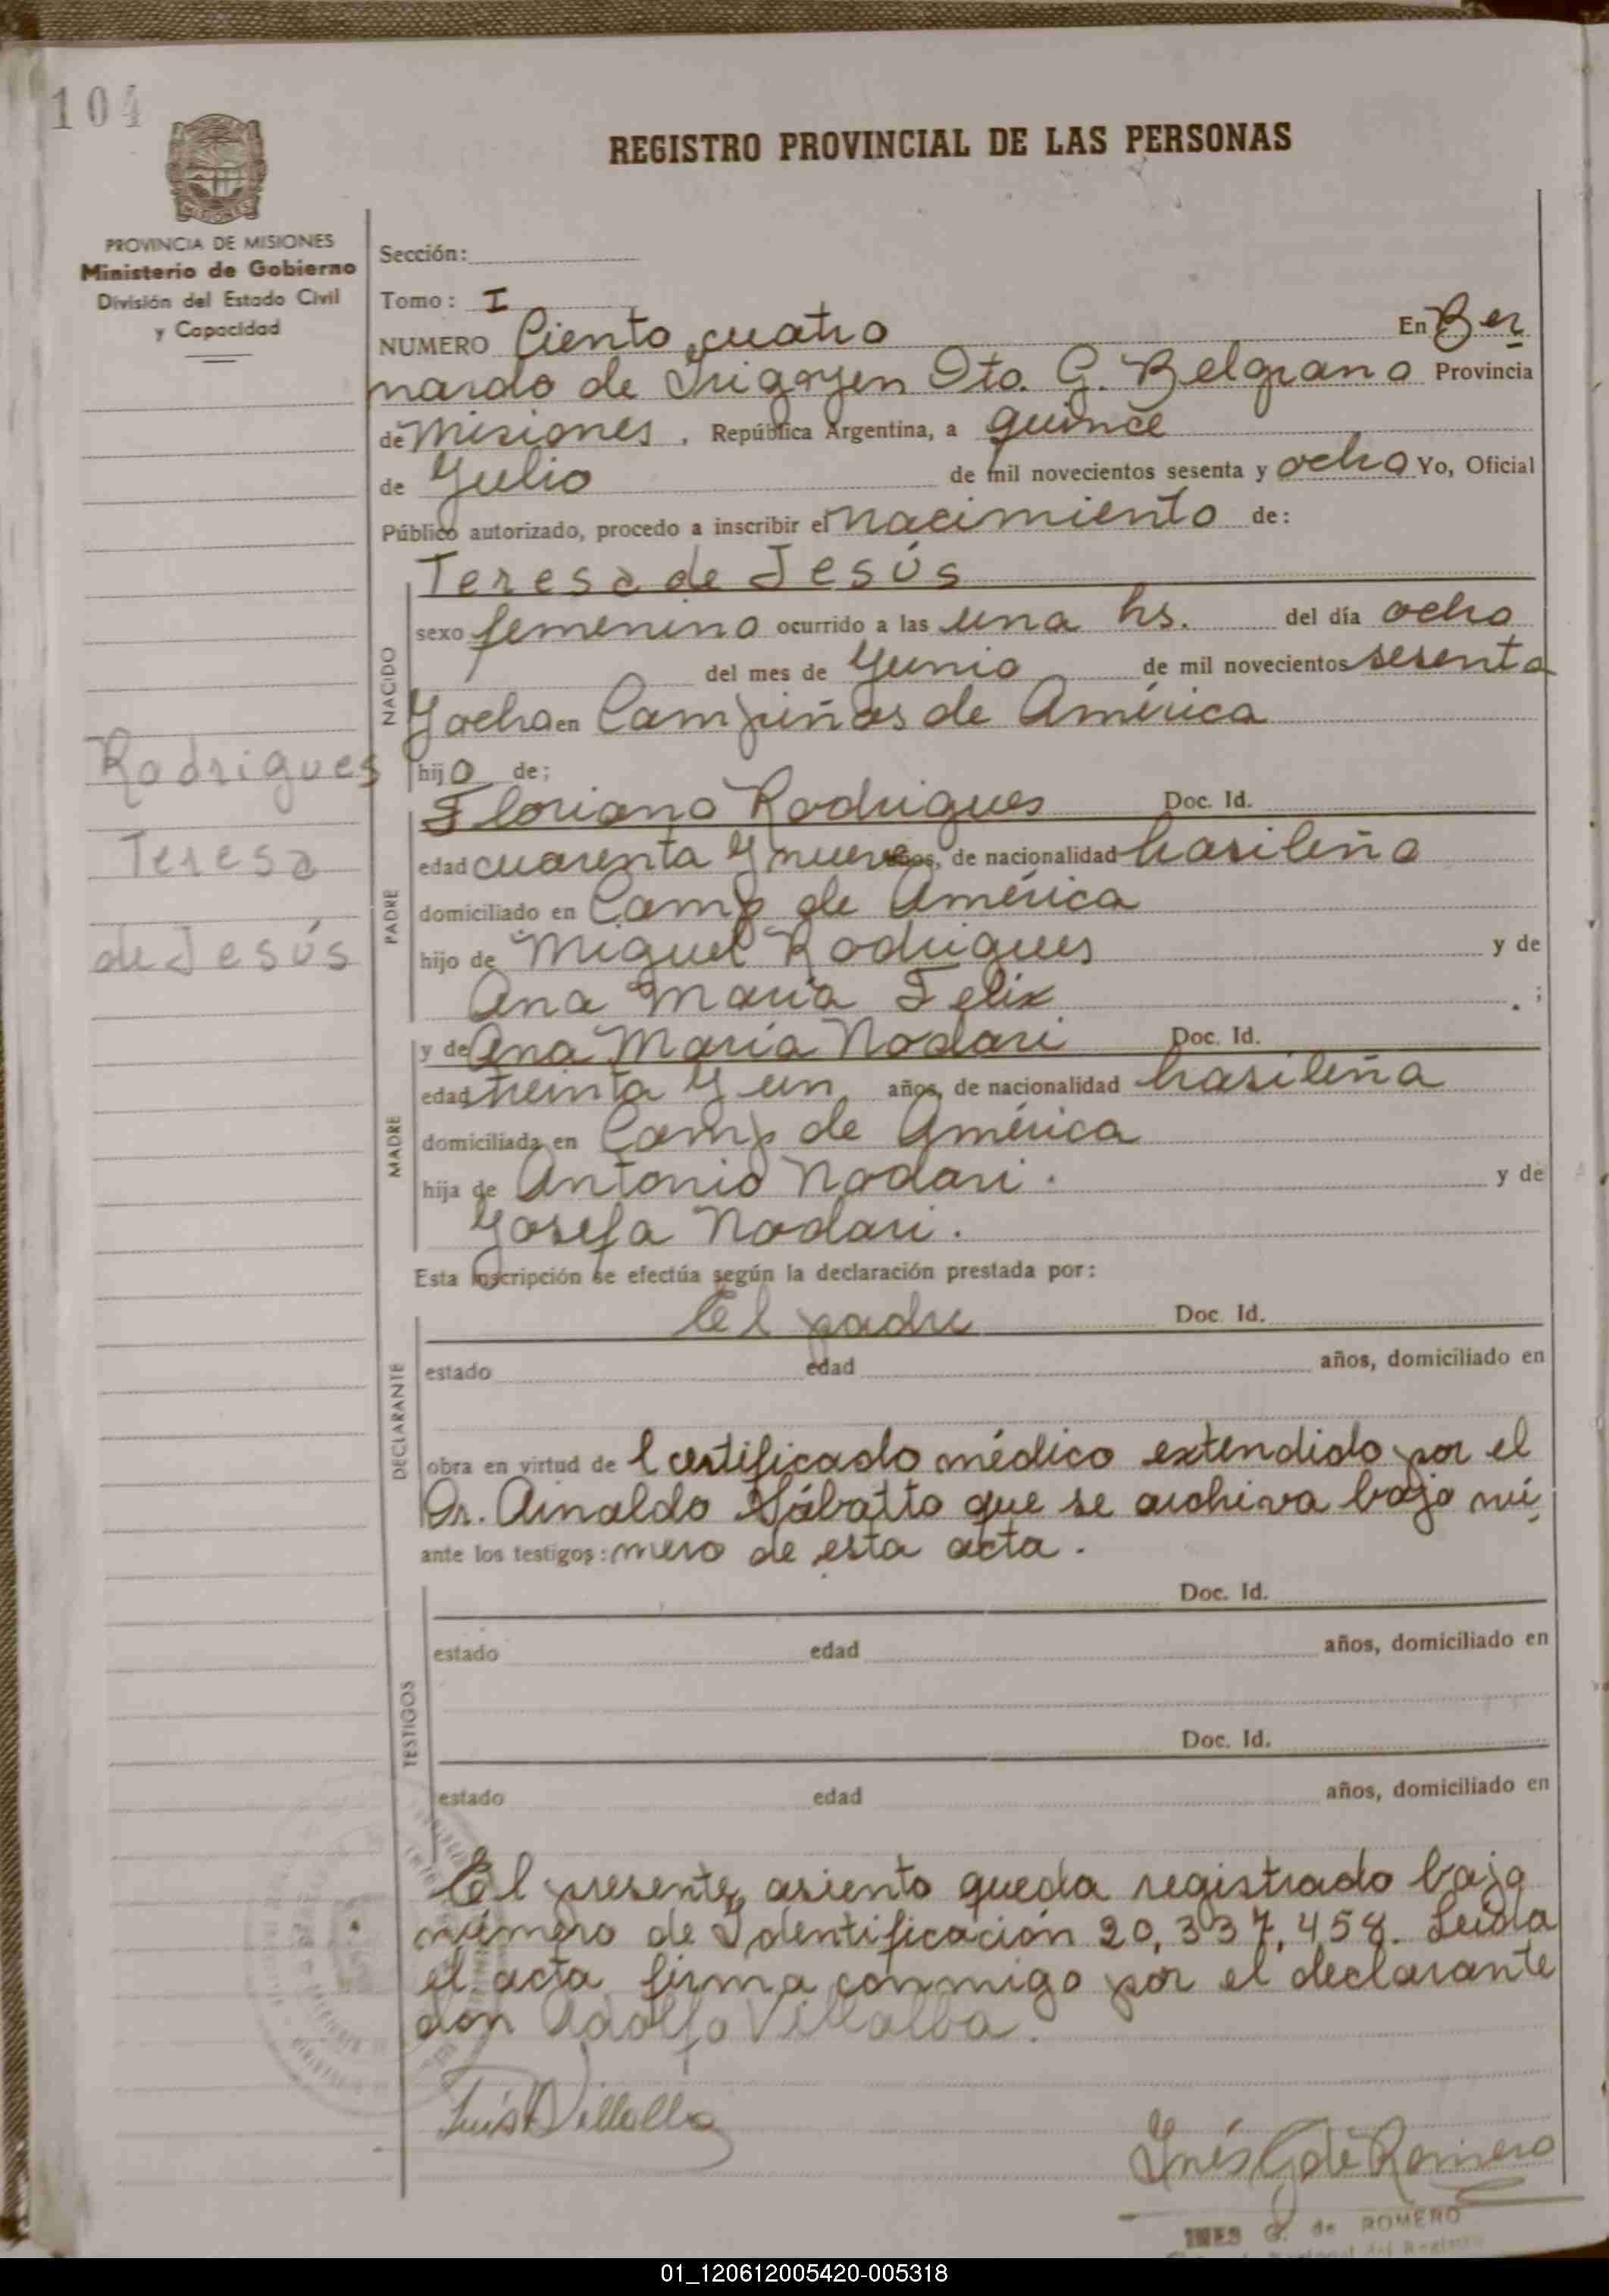 104
REGISTRO PROVINCIAL DE LAS PERSONAS
MISIONES
PROVINCIA DE MISIONES
Ministerio de Gobierno
División del Estado Civil
y Capacidad
Sección:
Tomo: I
NUMERO Ciento cuatro En Ber
nardo de Irigoyen Dto. G. Belgrano Provincia
de Misiones, República Argentina, a quince
de Julio de mil novecientos sesenta y ocho Yo, Oficial
Público autorizado, procedo a inscribir el nacimiento de:
Teresa de Jesús
NACIDO
sexo femenino ocurrido a las una hs. del día ocho
del mes de Junio de mil novecientos sesenta
y ocho en Campiñas de América
hijo de;
Rodrigues
Teresa
de Jesús
PADRE
Floriano Rodrigues Doc. Id.
edad cuarenta y nueve años, de nacionalidad brasileña
domiciliado en Camp de América
hijo de Miguel Rodrigues y de
Ana María Felix . ;
MADRE
y de Ana María Nodari Doc. Id.
edad treinta y un años, de nacionalidad brasileña
domiciliada en Camp de América
hija de Antonio Nodari. y de
Josefa Nodari.
Esta inscripción se efectúa según la declaración prestada por:
DECLARANTE
El padre Doc. Id.
estado edad años, domiciliado en
obra en virtud de l certificado médico extendido por el
Dr. Arnaldo Sábatto que se archiva bajo nú
ante los testigos: mero de esta acta.
TESTIGOS
Doc. Id.
estado edad años, domiciliado en
Doc. Id.
estado edad años, domiciliado en
El presente asiento queda registrado bajo
número de Identificación 20,337,458. Leida
el acta firma conmigo por el declarante
don Adolfo Villalba.
Luis Villalba
Inés G de Romero
INES G. de ROMERO
01_120612005420-005318